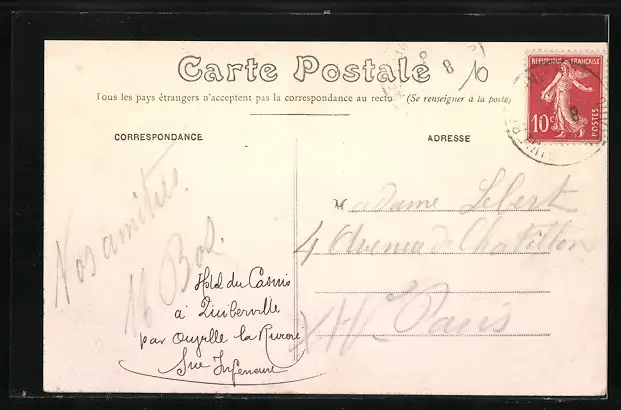 Carte Postale
10
Tous les pays étrangers n'acceptent pas la correspondance au recto. (Se renseigner à la poste)
REPUBLIQUE FRANÇAISE
10c
POSTES
CORRESPONDANCE
ADRESSE
Nos amitiés.
Madame Lebert
4 Avenue de Chatillon
Paris
Hotel du Casino
à Quiberville
par Ouville la Rivière
Sne Inférieure